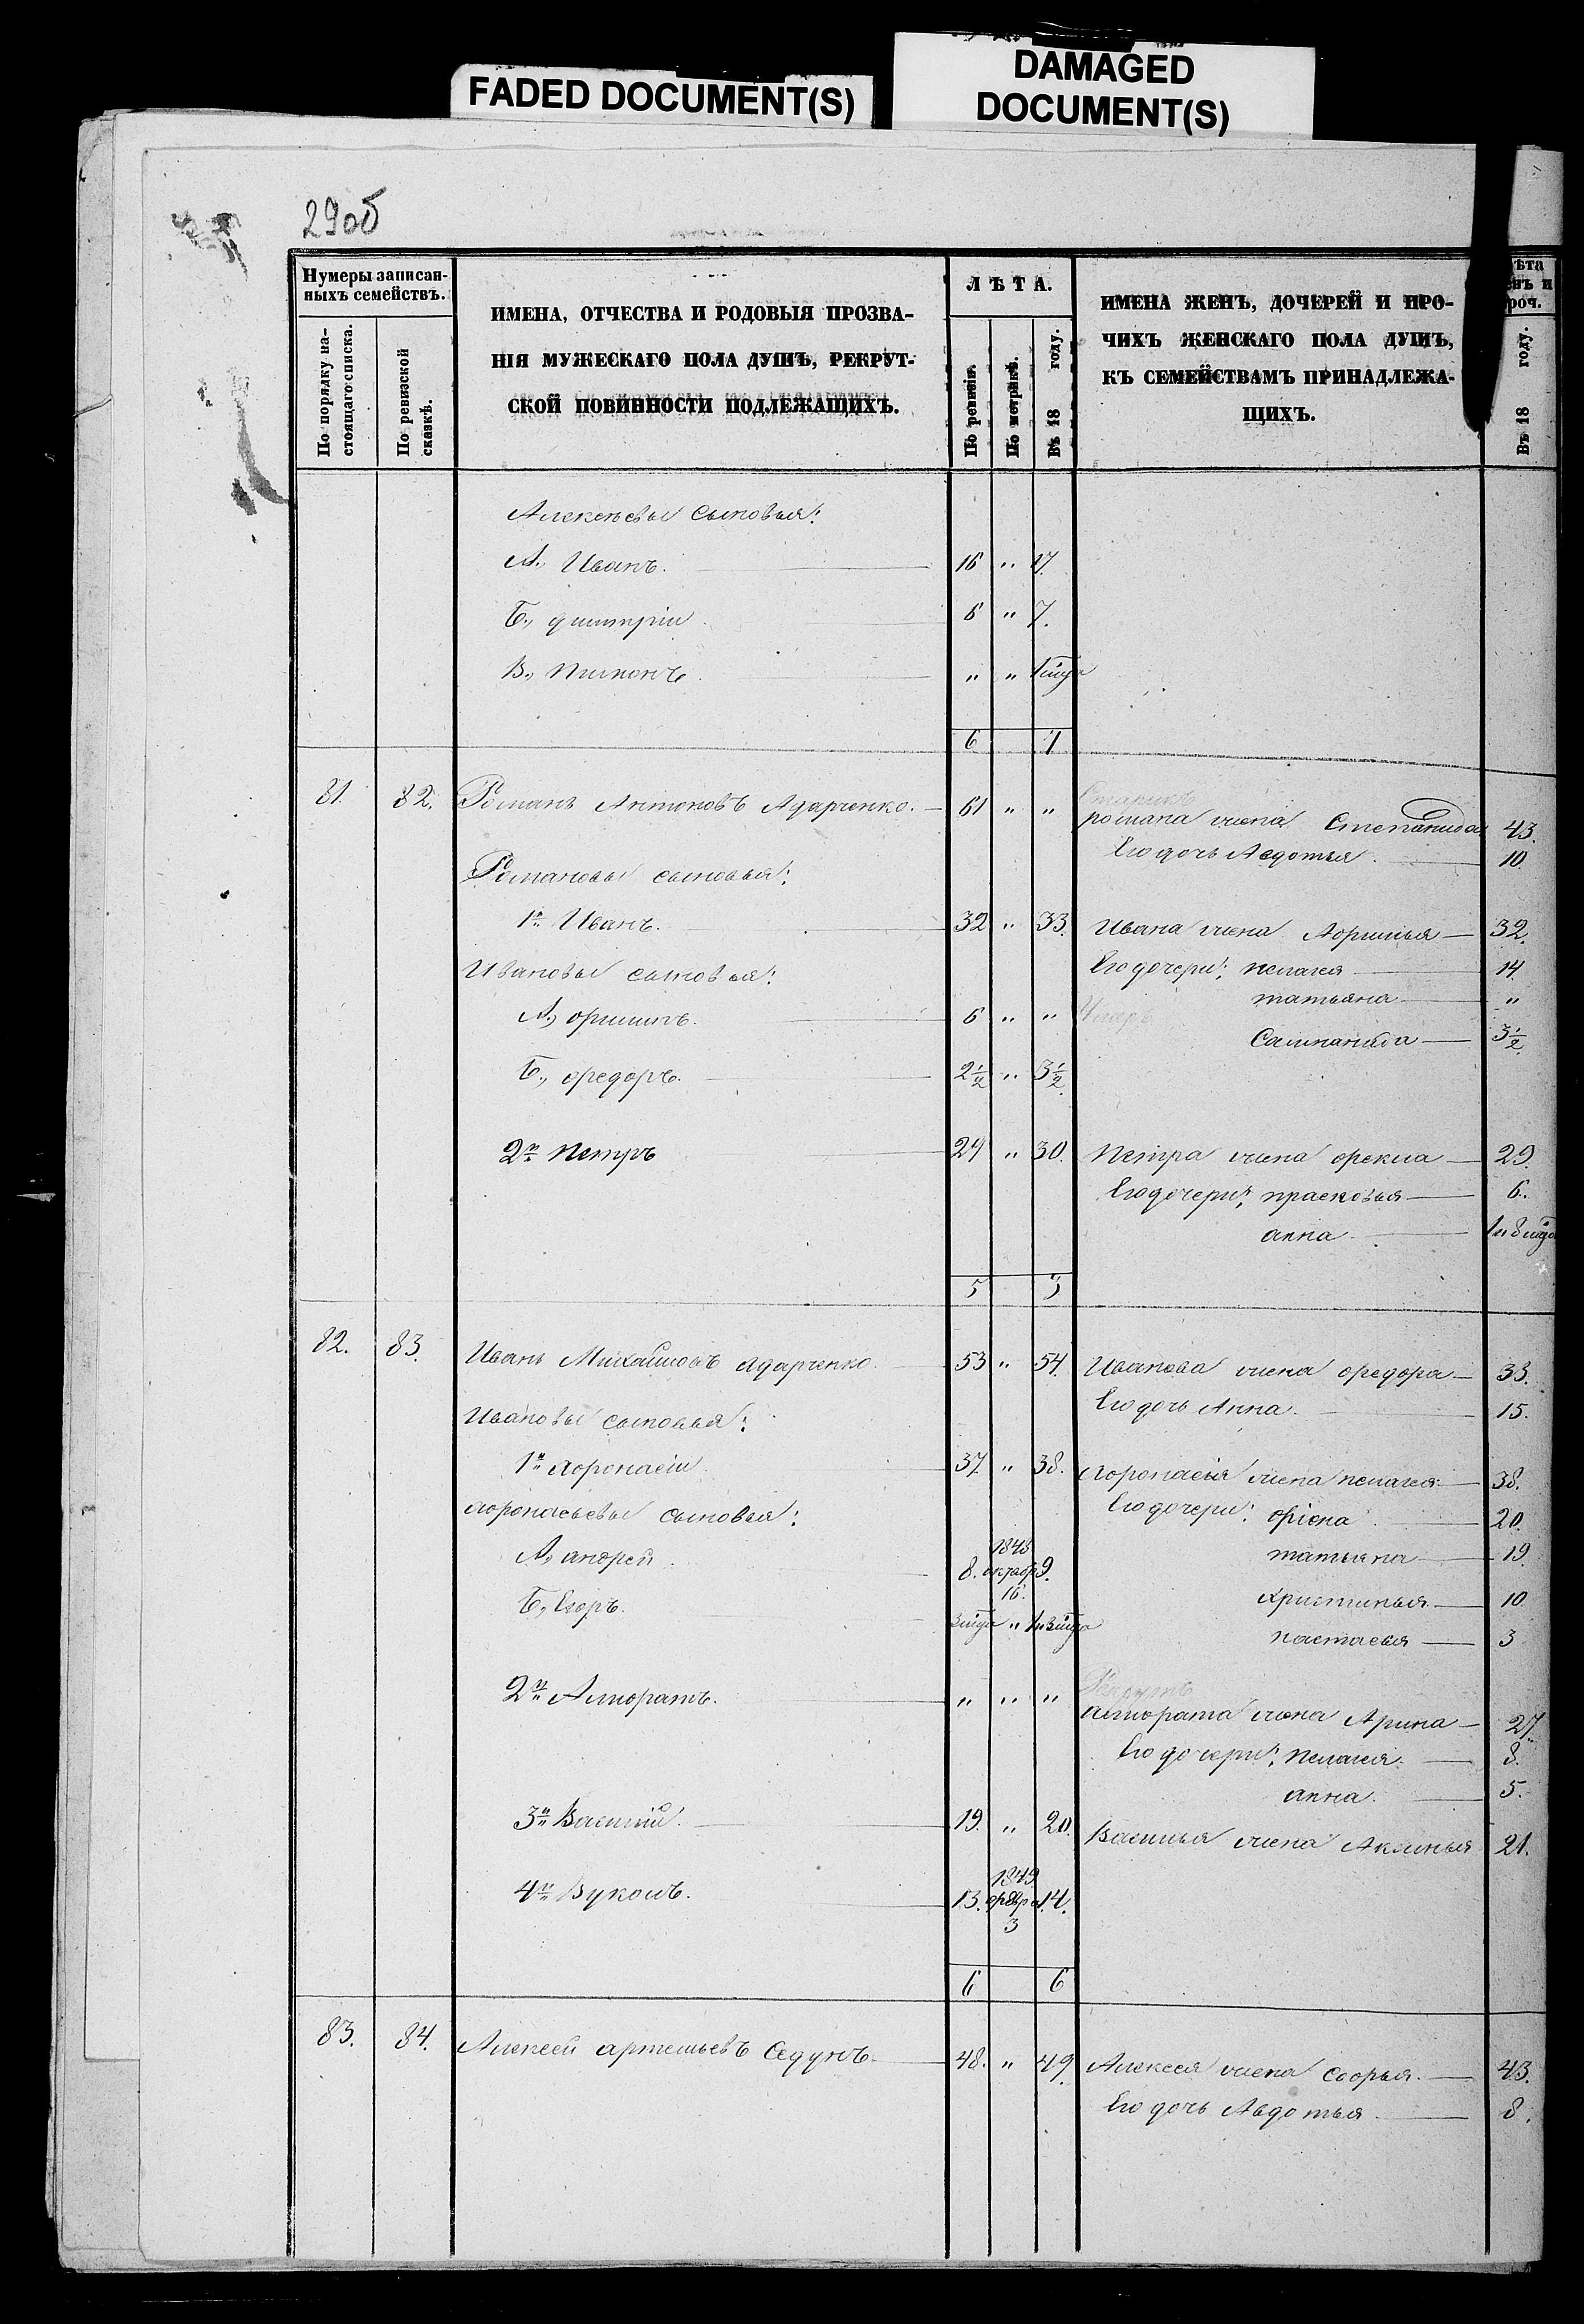 FADED DOCUMENT(S)
DAMAGED
DOCUMENT(S)
290б
Нумеры записан-
ныхъ семействъ.
По порядку на-
стоящаго списка.
По ревизской
сказкѣ.
ИМЕНА, ОТЧЕСТВА И РОДОВЫЯ ПРОЗВА-
НІЯ МУЖЕСКАГО ПОЛА ДУШЪ, РЕКРУТ-
СКОЙ ПОВИННОСТИ ПОДЛЕЖАЩИХЪ.
ЛѢТА.
По ревизіи.
По метрикѣ.
Въ 18 году.
ИМЕНА ЖЕНЪ, ДОЧЕРЕЙ И ПРО-
ЧИХЪ ЖЕНСКАГО ПОЛА ДУШЪ,
КЪ СЕМЕЙСТВАМЪ ПРИНАДЛЕЖА-
ЩИХЪ.
ѣта
нъ и
роч.
Въ 18 году.
Алексѣевы сыновья:
А., Иванъ. 16 " 17.
Б., дмитрiй 6 " 7.
В., " "
6 7
81. 82. Романъ Антоновъ Адарченко. 61 " "
романа жена Степанида 43.
Его дочь Авдотья 10.
Романовы сыновья:
1й Иванъ. 32 " 33. Ивана жена Афимья 32.
Ивановы сыновья: Его дочери: пелагея 14.
татьяна "
А., ефимъ. 6 " " Умеръ
3½
Б., федоръ. 2½ " 3½
2й Петръ 29 " 30. Петра жена фекла 29.
Его дочери: прасковья 6.
анна
5 3
82. 83. Иванъ Михайловъ Адарченко. 53 " 54. Иванова жена федора 33.
Ивановы сыновья: Его дочь Анна 15.
1й афонасiй 37. " 38. Афонасья жена пелагея 38.
афонасьевы сыновья: Его дочери: 20.
А., андрей 8. 1848 октябр 16. 9. татьяна 19.
Б., Егоръ. христинья 10
настасья 3
2й " " " Рекрутъ
жена Арина 27.
Его дочери: пелагея. 8.
анна. 5.
3й Василiй. 19. " 20. Василья жена Акулинья 21.
4й Вуколъ. 13. 1843 февра 3 14.
6 6
83. 84. Алексей артемьевъ Седунъ. 48. " 49. Алексея жена Софья. 43.
Его дочь Авдотья 8.